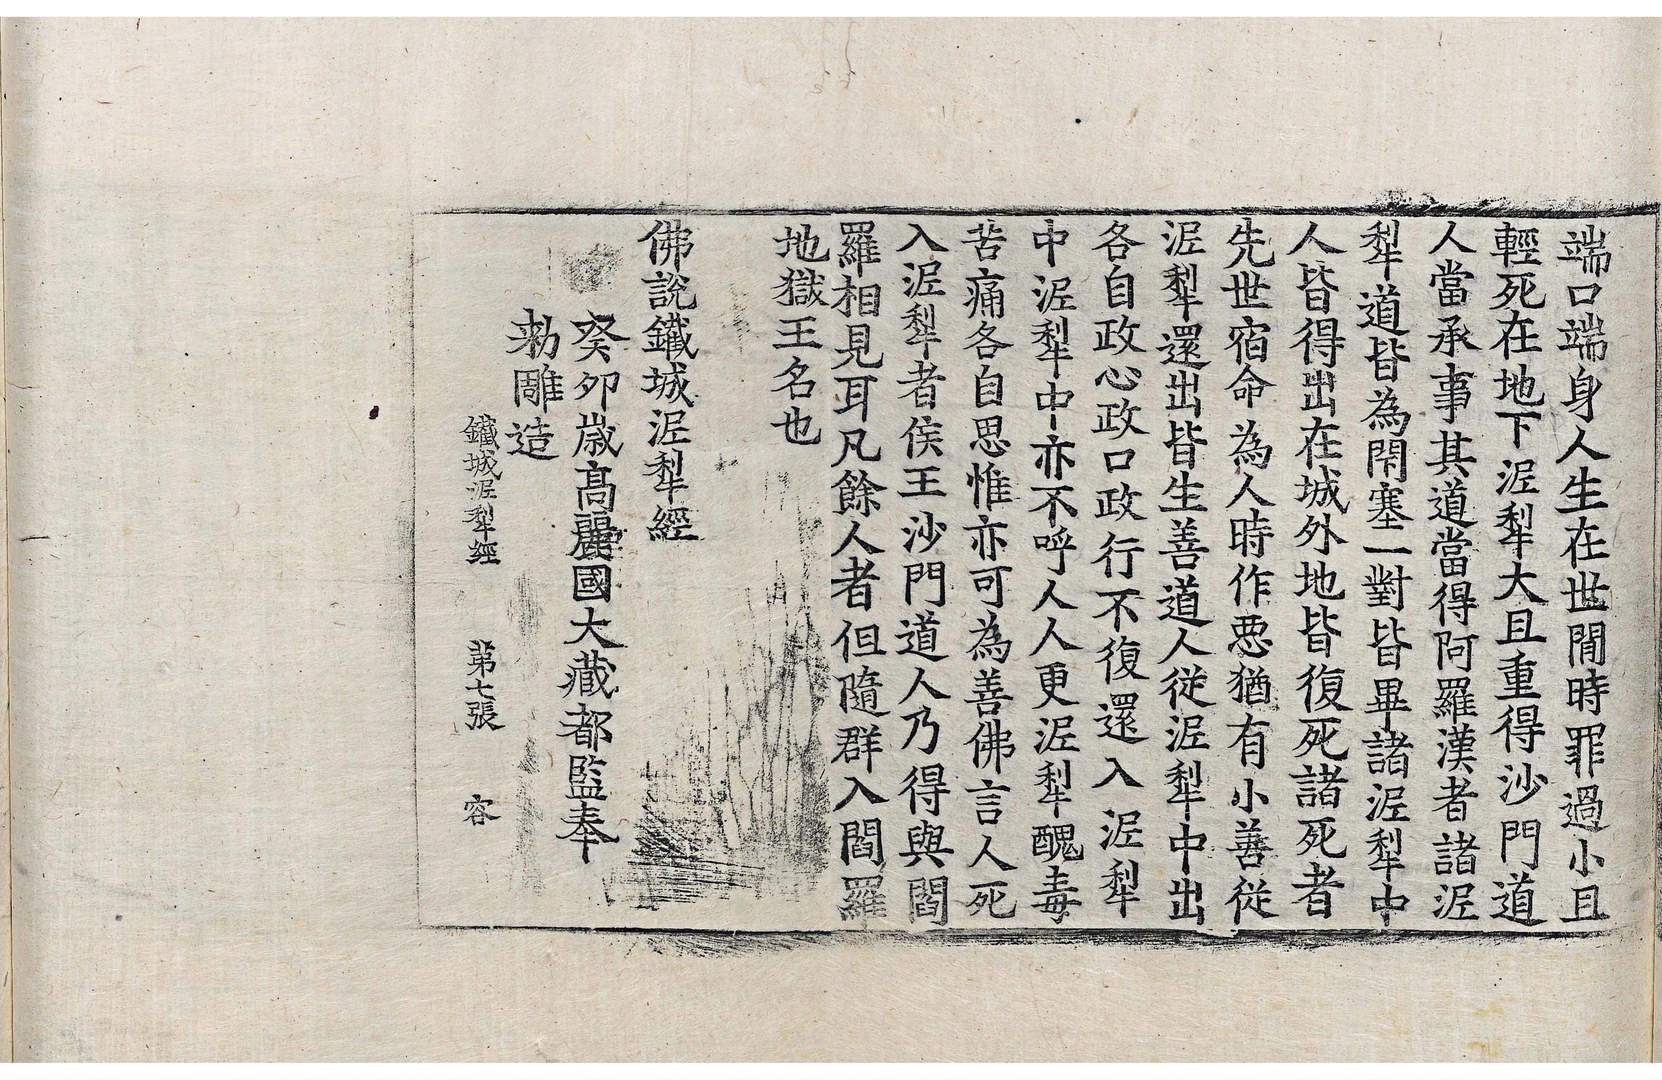 端口端身人生在世閒時罪過小且
輕死在地下泥犁大且重得沙門道
人當承事其道當得阿羅漢者諸泥
犁道皆為閇塞一對皆畢諸泥犁中
人皆得出在城外地皆復死諸死者
先世宿命為人時作惡猶有小善従
泥犁還出皆生善道人従泥犁中出
各自政心政口政行不復還入泥犁
中泥犁中亦不呼人人更泥犁醜毒
苦痛各自思惟亦可為善佛言人死
入泥犁者侯王沙門道人乃得與閻
羅相見耳凡餘人者但隨群入閻羅
地獄王名也
佛說鐵城泥犁經
癸夘歲高麗國大藏都監奉
勑雕造
鐵城泥犁經　第七張　容